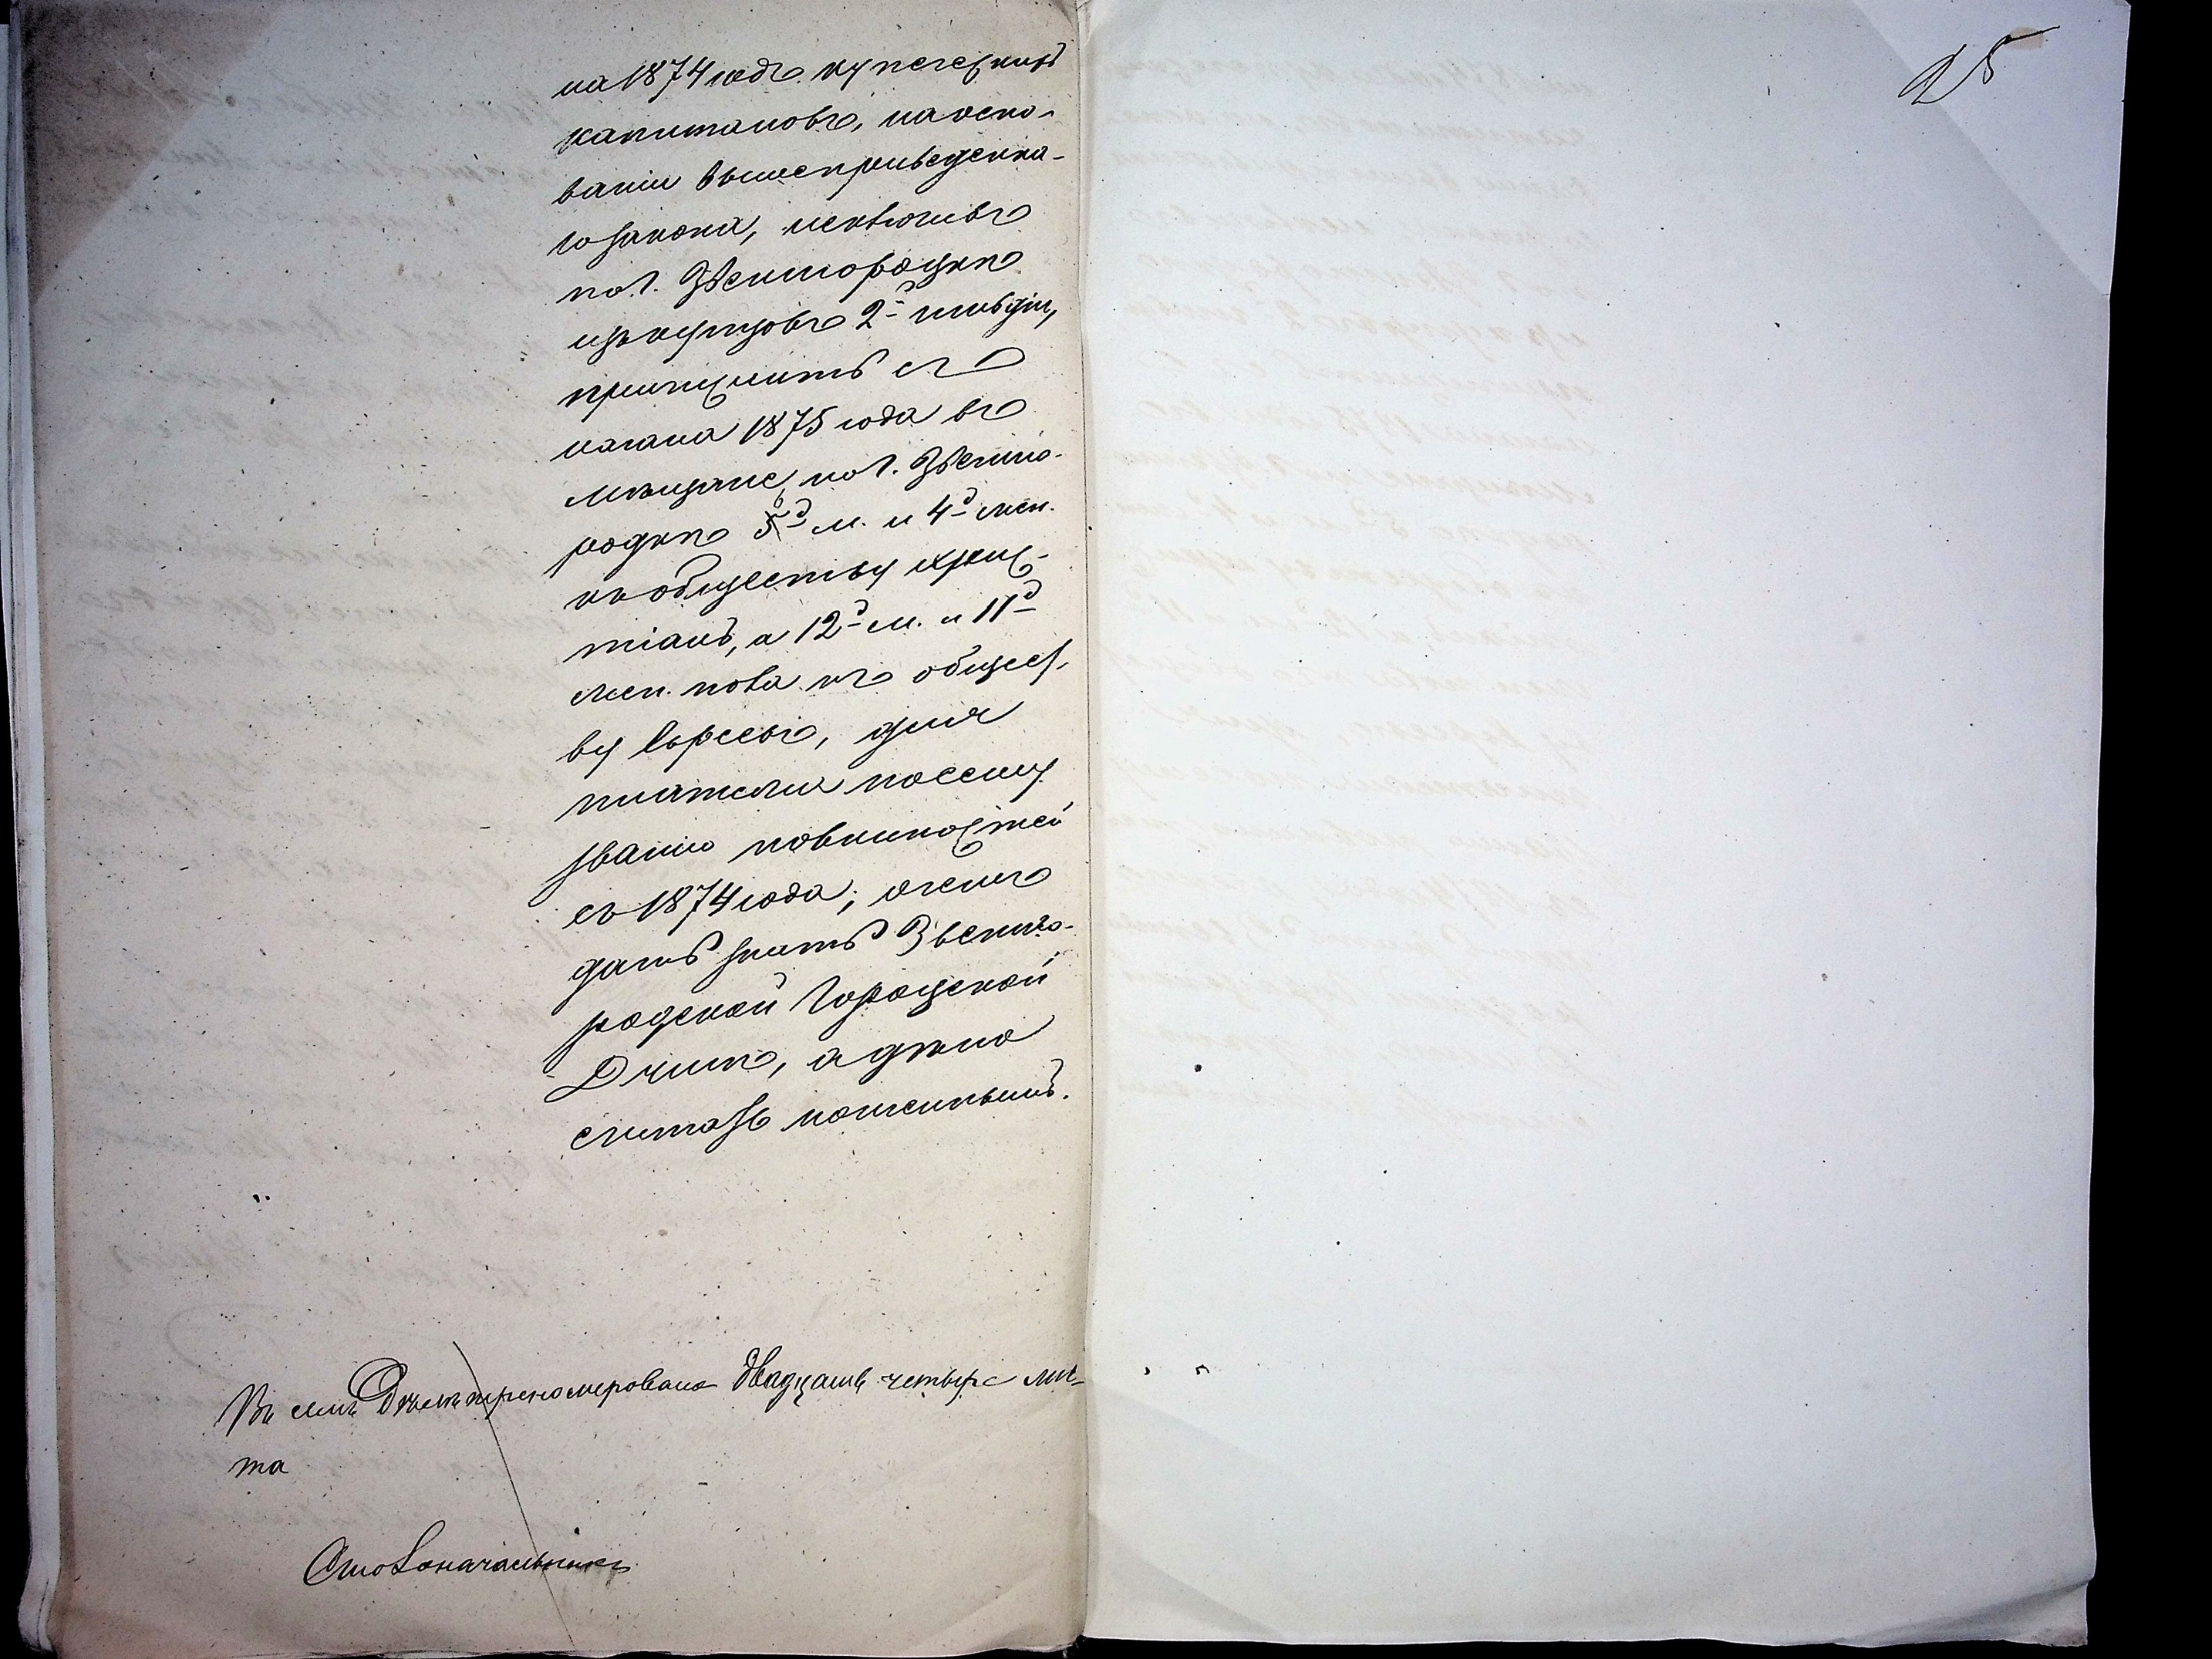 25
на 1874 годъ купеческихъ
капиталовъ, на осно-
ваніи вышеприведенна-
го закона, исключивъ
по г. Звенигородкѣ
изъ купцовъ 2й гильдіи,
причислить съ
начала 1875 года въ
мѣщане, по г. Звениго-
родкѣ 5д м. и 4д жен.
къ обществу христ-
іанъ, а 12д м. и 11д
жен. пола къ общест-
ву Евреевъ, для
платежа по сему
званію повинностей
съ 1874 года; о чемъ
дать знать Звениго-
родской Городской
Думѣ, а дѣло
считать конченнымъ.
Въ семъ Дѣлѣ преномеровано двадцать четыре лис-
та
Столоначальникъ